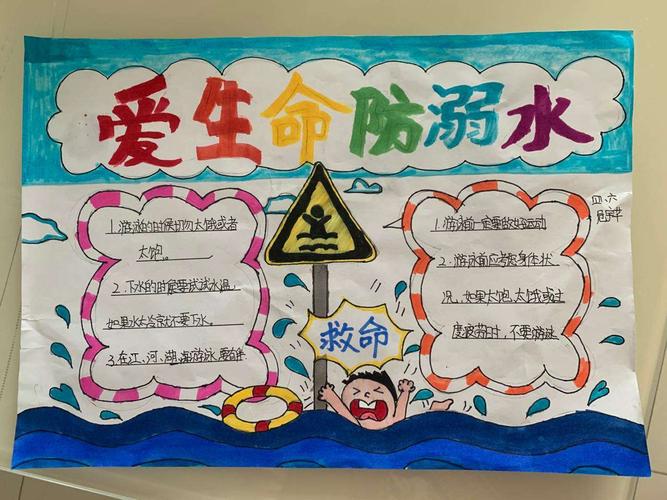 爱生命防溺水
四.六
1.游泳的时候切勿太饿或者
太饱。
2.下水的时候要试试水温,
如果水太冷就不要下水。
3.在江、河、湖、海游泳,要有伴
救命
1.游泳前一定要做好运动
2.游泳前应考虑身体状
况,如果太饱、太饿或过
度疲劳时,不要游泳